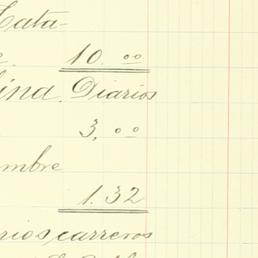 Cata-
10.00
ina. Diarios
3,00
mbre
1.32
rios, carreros